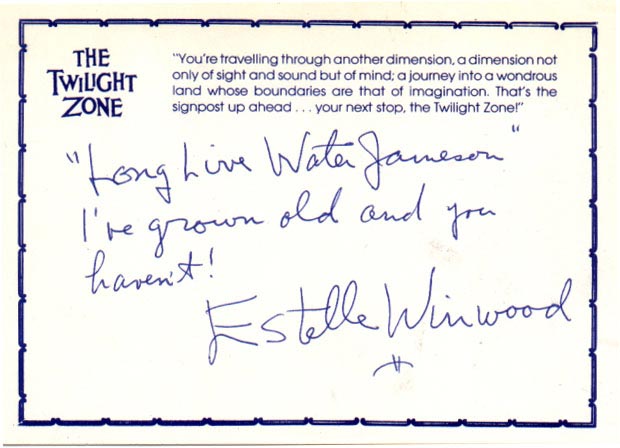 THE
TWILIGHT
ZONE
"You're travelling through another dimension, a dimension not
only of sight and sound but of mind; a journey into a wondrous
land whose boundaries are that of imagination. That's the
signpost up ahead . . . your next stop, the Twilight Zone!"
"Long Live Water Jameson"
I've grown old and you
haven't!
Estelle Winwood